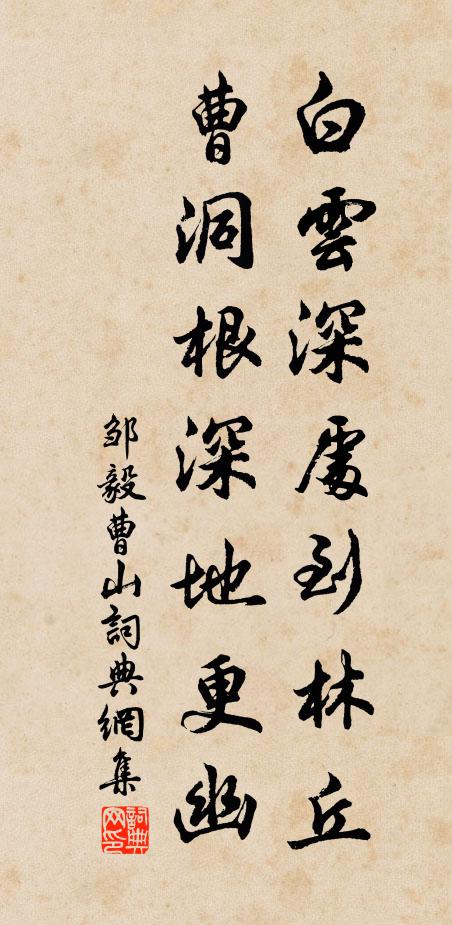 白雲深處到林丘
曹洞根深地更幽
邹毅曹山詞典網集
詞典网印